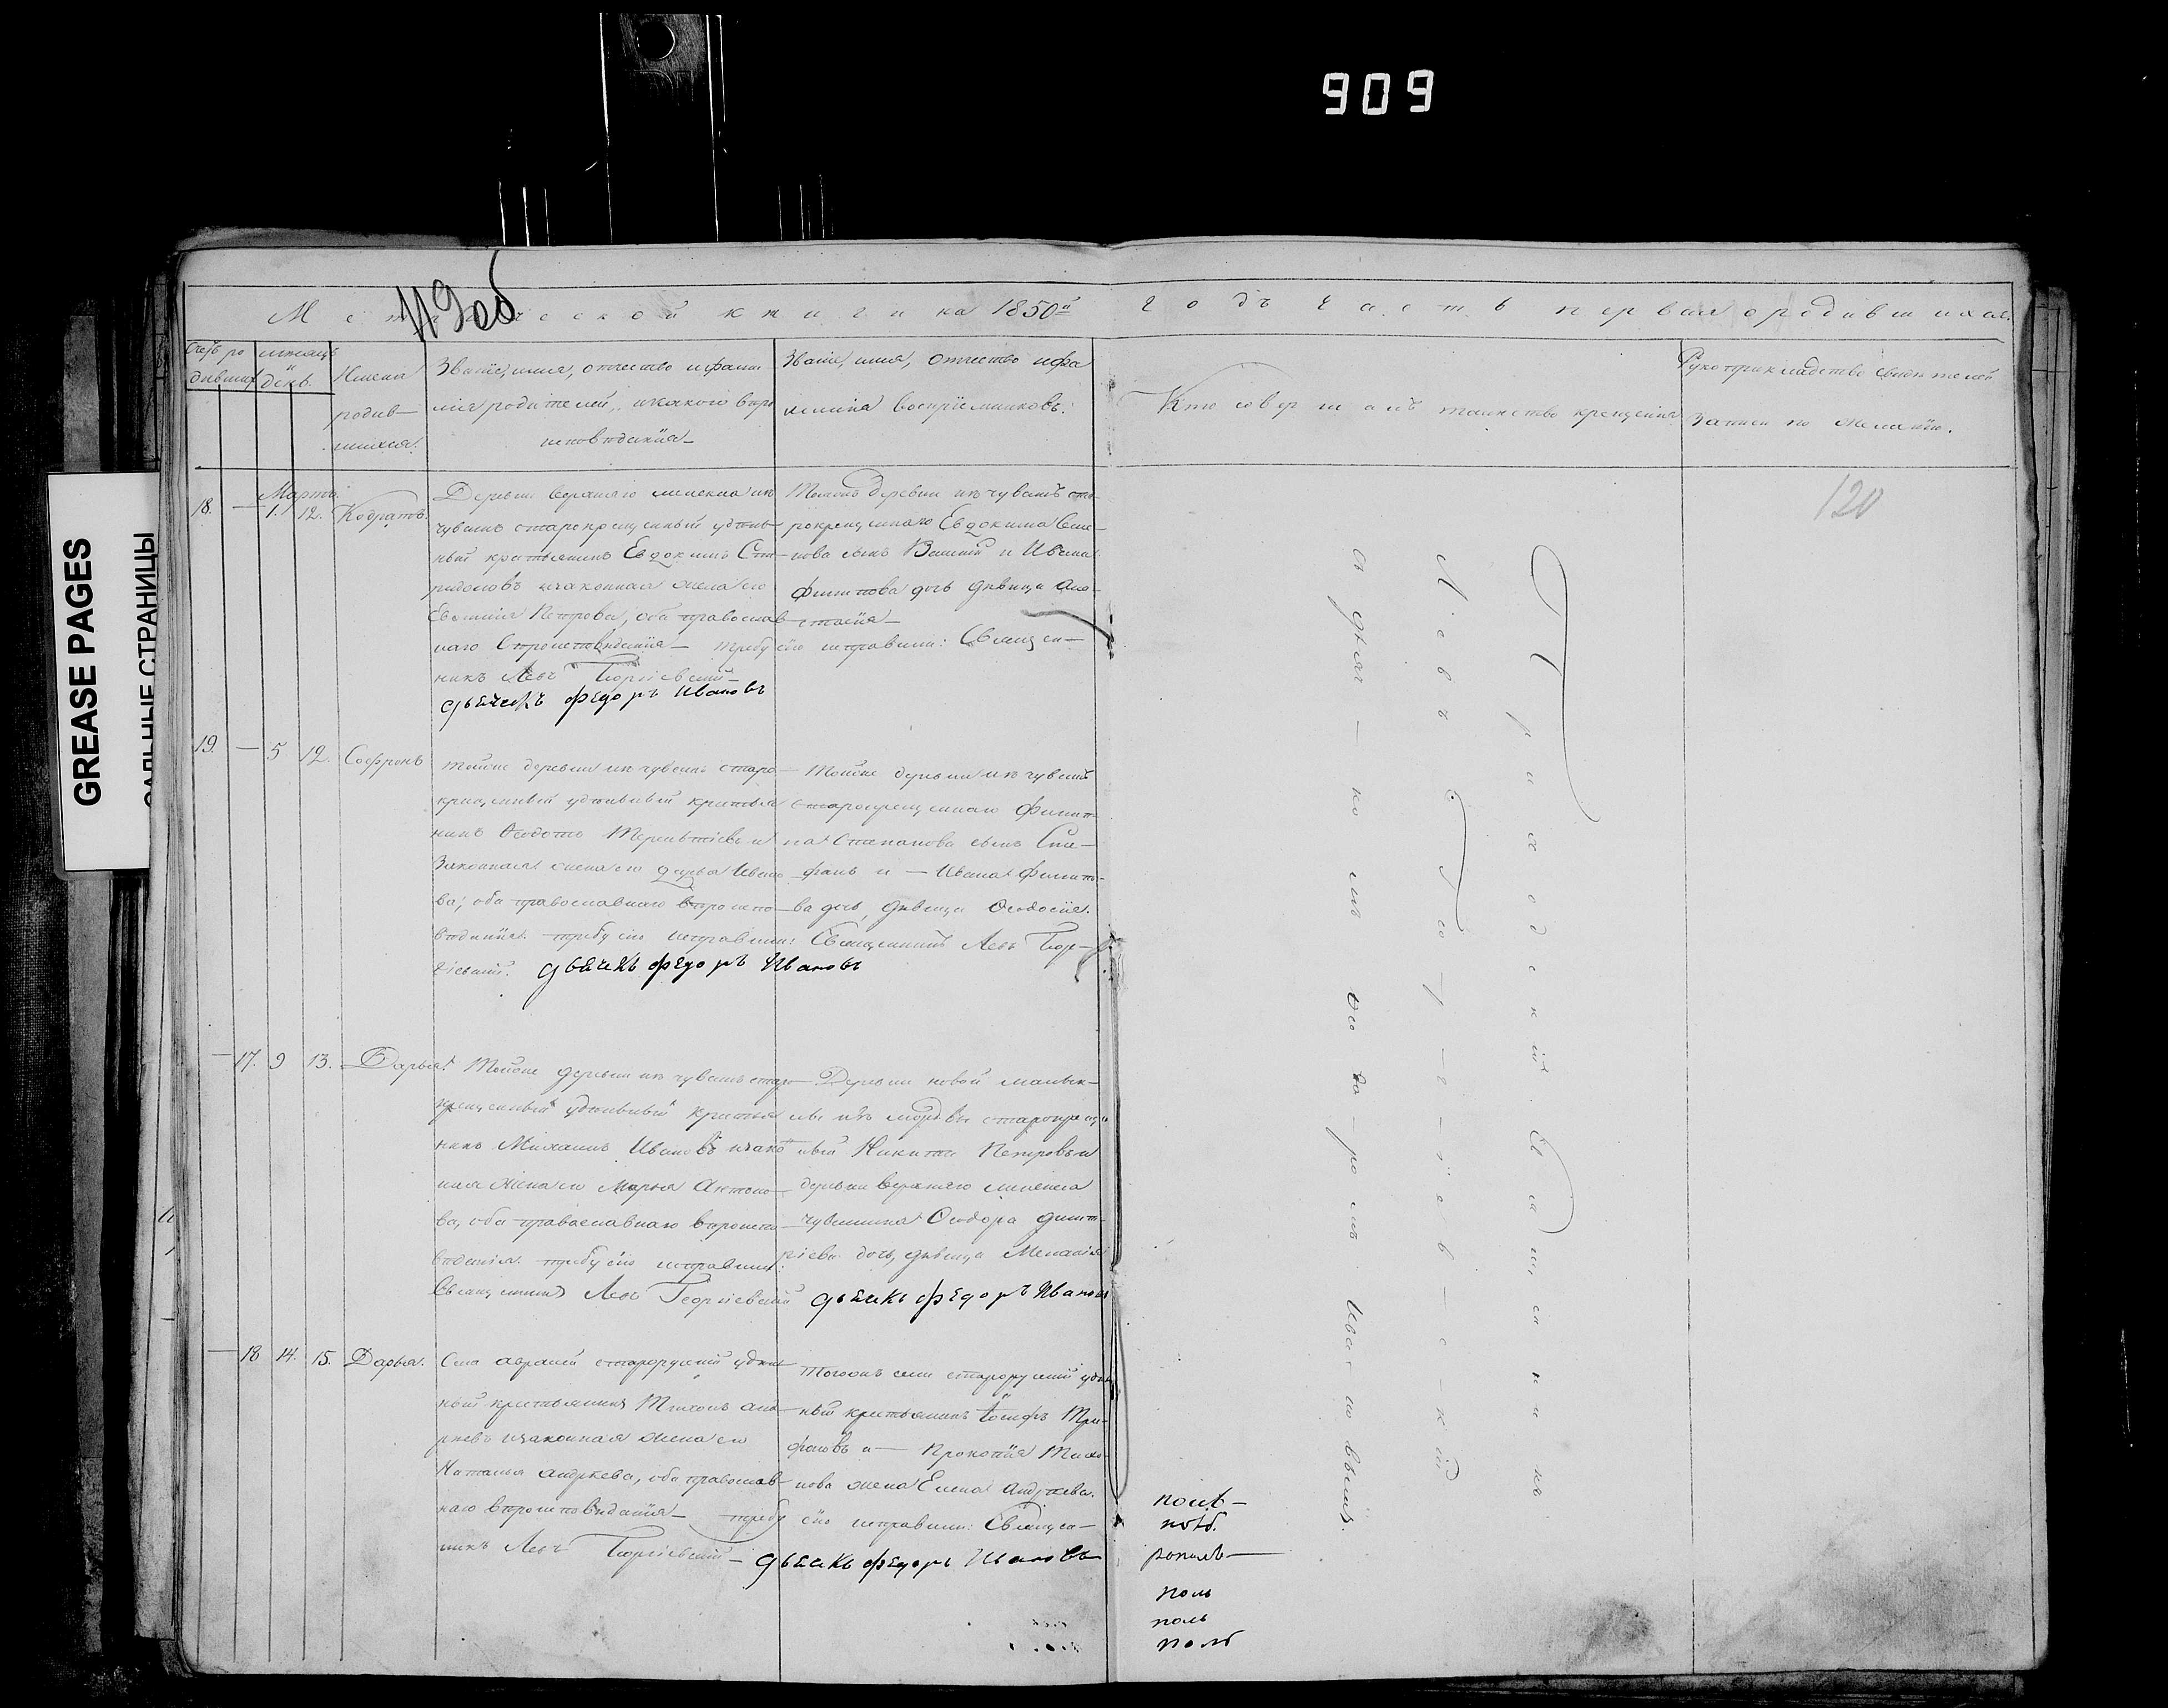 909
GREASE PAGES
САЛЬНЫЕ СТРАНИЦЫ
119об
Метрической книги на 1850й
годъ часть первая о родившихся.
Счетъ ро
дившихся
мѣсяцъ
и
день.
Имена
родив-
шихся.
Званіе, имя, отчество и фами
лія родителей, и какого вѣро
исповѣданія-
Званіе, имя, отчество и фа
милія воспріемниковъ.
Кто совершалъ таинство крещенія
Рукоприкладство свидѣтелей
записи по желанію.
120
Мартъ.
18. — 1. 12. Кодратъ.
Деревни верхняго из
чувашъ старокрещенный удѣль-
ный крестьянинъ Евдокимъ Спи-
ридоновъ и законная жена его
Евѳимія Петрова, оба православ-
наго вѣроисповѣданія — требу
никъ Левъ Георгіевскій-
дьячекъ федоръ Ивановъ
Тойже деревни изъ чувашъ ста-
рокрещеннаго Евдокима Семе-
нова сынъ Василій и Ивана
Филиппова дочь дѣвица Ана-
стасія-
сію исправили: Священ-
19. — 5 12. Софронъ
Тойже деревни изъ чувашъ старо-
крещенный удѣльный крестья
нинъ Ѳедотъ Терентьевъ и
законная жена его дарья Ивано
ва, оба православнаго вѣроиспо-
вѣданія. требу сію исправили: Священникъ Левъ Геор-
гіевскій. дьячекъ федоръ Ивановъ
Тойже деревни изъ чувашъ
старокрещеннаго Филип-
па Степанова сынъ Сте-
фанъ и — Ивана Филиппо-
ва дочь, дѣвица Ѳеодосія.
— 17. 9 13. Дарья.
Тойже деревни изъ чувашъ старо
крещенный удѣльный крестья
нинъ Михаилъ Ивановъ и зако
ная жена его Марья Антоно-
ва, оба православнаго вѣроиспо-
вѣданія. требу сію исправили:
Священникъ Левъ Георгіевскій дьячекъ федоръ Ивановъ
Деревни новой малык-
лы изъ мордвы старокреще
ный Никита Петровъ и
деревни верхняго
чувашина Ѳеодора Димит-
ріева дочь, дѣвица Меланія
— 18 14. 15. Дарья.
Села аврали старорускій удѣль
ный крестьянинъ Тихонъ анд-
рѣевъ и законная жена его
Наталья андрѣева, оба православ-
наго вѣроисповѣданія- требу сію исправили: Священ-
никъ Левъ Георгіевскій- дьячекъ федоръ Ивановъ
Тогожъ села старорускій удѣль
ный крестьянинъ Іосифъ Три-
фоновъ и — Прокопія Тихо-
нова жена Елена андрѣева.
Приходскій Священникъ
Левъ Георгіевскій
съ дьячкомъ Ѳеодоромъ Ивановымъ.
поль
поль